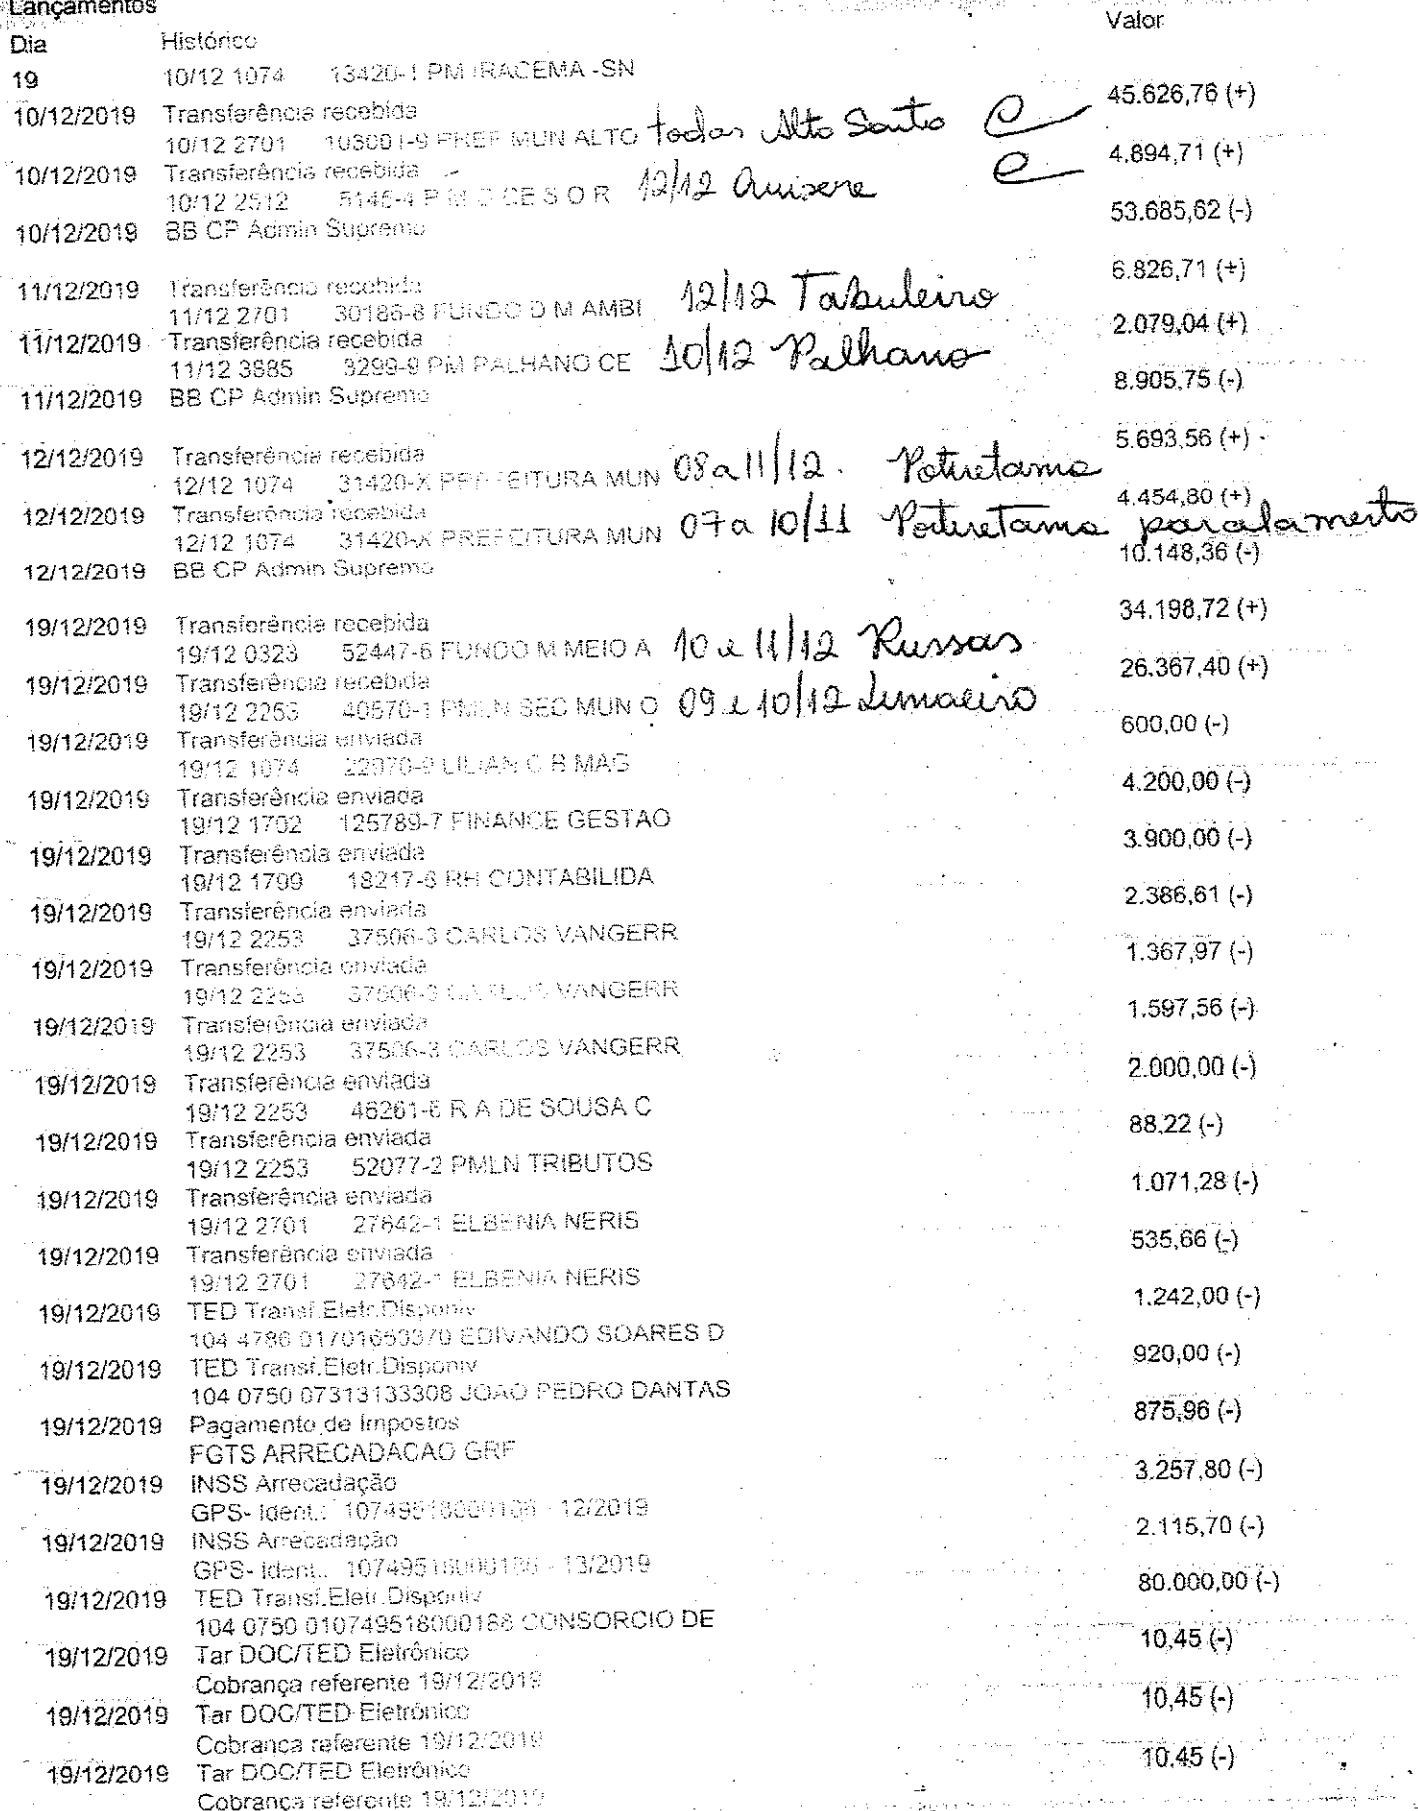 Lançamentos
Dia Histórico Valor
19 10/12 1074 13420-1 PM IRACEMA -SN
10/12/2019 Transferência recebida 45.626,76 (+)
10/12 2701 103001-9 PREF MUN ALTO todas Alto Santo
10/12/2019 Transferência recebida 4.894,71 (+)
10/12 2512 5145-4 P M CE S O R 12/12 Quixere
10/12/2019 BB CP Admin Supremo 53.685,62 (-)
11/12/2019 Transferência recebida 6.826,71 (+)
11/12 2701 30186-8 FUNDO D M AMBI 12/12 Tabuleiro
11/12/2019 Transferência recebida 2.079,04 (+)
11/12 3885 3299-9 PM PALHANO CE 10/12 Palhano
11/12/2019 BB CP Admin Supremo 8.905,75 (-)
12/12/2019 Transferência recebida 5.693,56 (+)
12/12 1074 31420-X PREFEITURA MUN 08 a 11/12. Potiretama
12/12/2019 Transferência recebida 4.454,80 (+)
12/12 1074 31420-X PREFEITURA MUN 07 a 10/11 Potiretama paralamento
12/12/2019 BB CP Admin Supremo 10.148,36 (-)
19/12/2019 Transferência recebida 34.198,72 (+)
19/12 0323 52447-6 FUNDO M MEIO A 10 e 11/12 Russas
19/12/2019 Transferência recebida 26.367,40 (+)
19/12 2253 40570-1 PMLN SEC MUN O 09 e 10/12 Limoeiro
19/12/2019 Transferência enviada 600,00 (-)
19/12 1074 22970-9 LILIAN C R MAG
19/12/2019 Transferência enviada 4.200,00 (-)
19/12 1702 125789-7 FINANCE GESTAO
19/12/2019 Transferência enviada 3.900,00 (-)
19/12 1799 18217-6 RH CONTABILIDA
19/12/2019 Transferência enviada 2.386,61 (-)
19/12 2253 37506-3 CARLOS VANGERR
19/12/2019 Transferência enviada 1.367,97 (-)
19/12 2253 37506-3 CARLOS VANGERR
19/12/2019 Transferência enviada 1.597,56 (-)
19/12 2253 37506-3 CARLOS VANGERR
19/12/2019 Transferência enviada 2.000,00 (-)
19/12 2253 46261-6 R A DE SOUSA C
19/12/2019 Transferência enviada 88,22 (-)
19/12 2253 52077-2 PMLN TRIBUTOS
19/12/2019 Transferência enviada 1.071,28 (-)
19/12 2701 27642-1 ELBENIA NERIS
19/12/2019 Transferência enviada 535,66 (-)
19/12 2701 27642-1 ELBENIA NERIS
19/12/2019 TED Transf.Eletr.Disponiv 1.242,00 (-)
104 4786 01701653370 EDIVANDO SOARES D
19/12/2019 TED Transf.Eletr.Disponiv 920,00 (-)
104 0750 07313133308 JOAO PEDRO DANTAS
19/12/2019 Pagamento de Impostos 875,96 (-)
FGTS ARRECADACAO GRF
19/12/2019 INSS Arrecadação 3.257,80 (-)
GPS- Ident.: 10749518000186 - 12/2019
19/12/2019 INSS Arrecadação 2.115,70 (-)
GPS- Ident.: 10749518000186 - 13/2019
19/12/2019 TED Transf.Eletr.Disponiv 80.000,00 (-)
104 0750 010749518000186 CONSORCIO DE
19/12/2019 Tar DOC/TED Eletrônico 10,45 (-)
Cobrança referente 19/12/2019
19/12/2019 Tar DOC/TED Eletrônico 10,45 (-)
Cobrança referente 19/12/2019
19/12/2019 Tar DOC/TED Eletrônico 10,45 (-)
Cobrança referente 19/12/2019